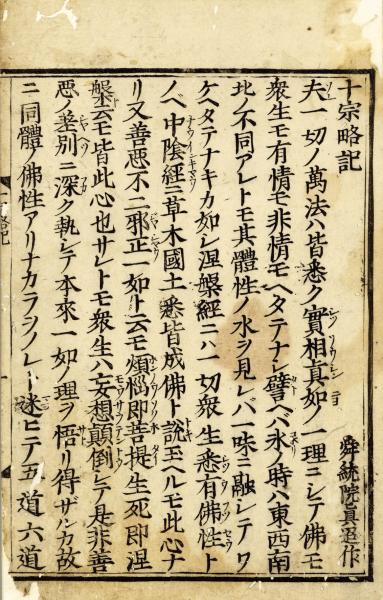 十宗略記
舜統院真迢作
夫一切ノ萬法ハ皆悉ク實相眞如ノ一理ニシテ佛モ
衆生モ有情モ非情モヘタテナシ譬ヘバ氷ノ時ハ東西南
北ノ不同アレトモ其體性ノ水ヲ見レバ一味ニ融シテワ
ケヘタテナキカ如シ涅槃經ニハ一切衆生悉有佛性ト
ノベ中陰經ニ草木國土悉皆成佛ト說玉ヘルモ此心ナ
リ又善惡不二邪正一如ト云モ煩惱即菩提生死即涅
槃ト云モ皆此心也サレトモ衆生ハ妄想顛倒シテ是非善
惡ノ差別ニ深ク執シテ本來一如ノ理ヲ悟リ得ザルカ故
ニ同體ノ佛性アリナカラヲノレト迷ヒテ五道六道
略記